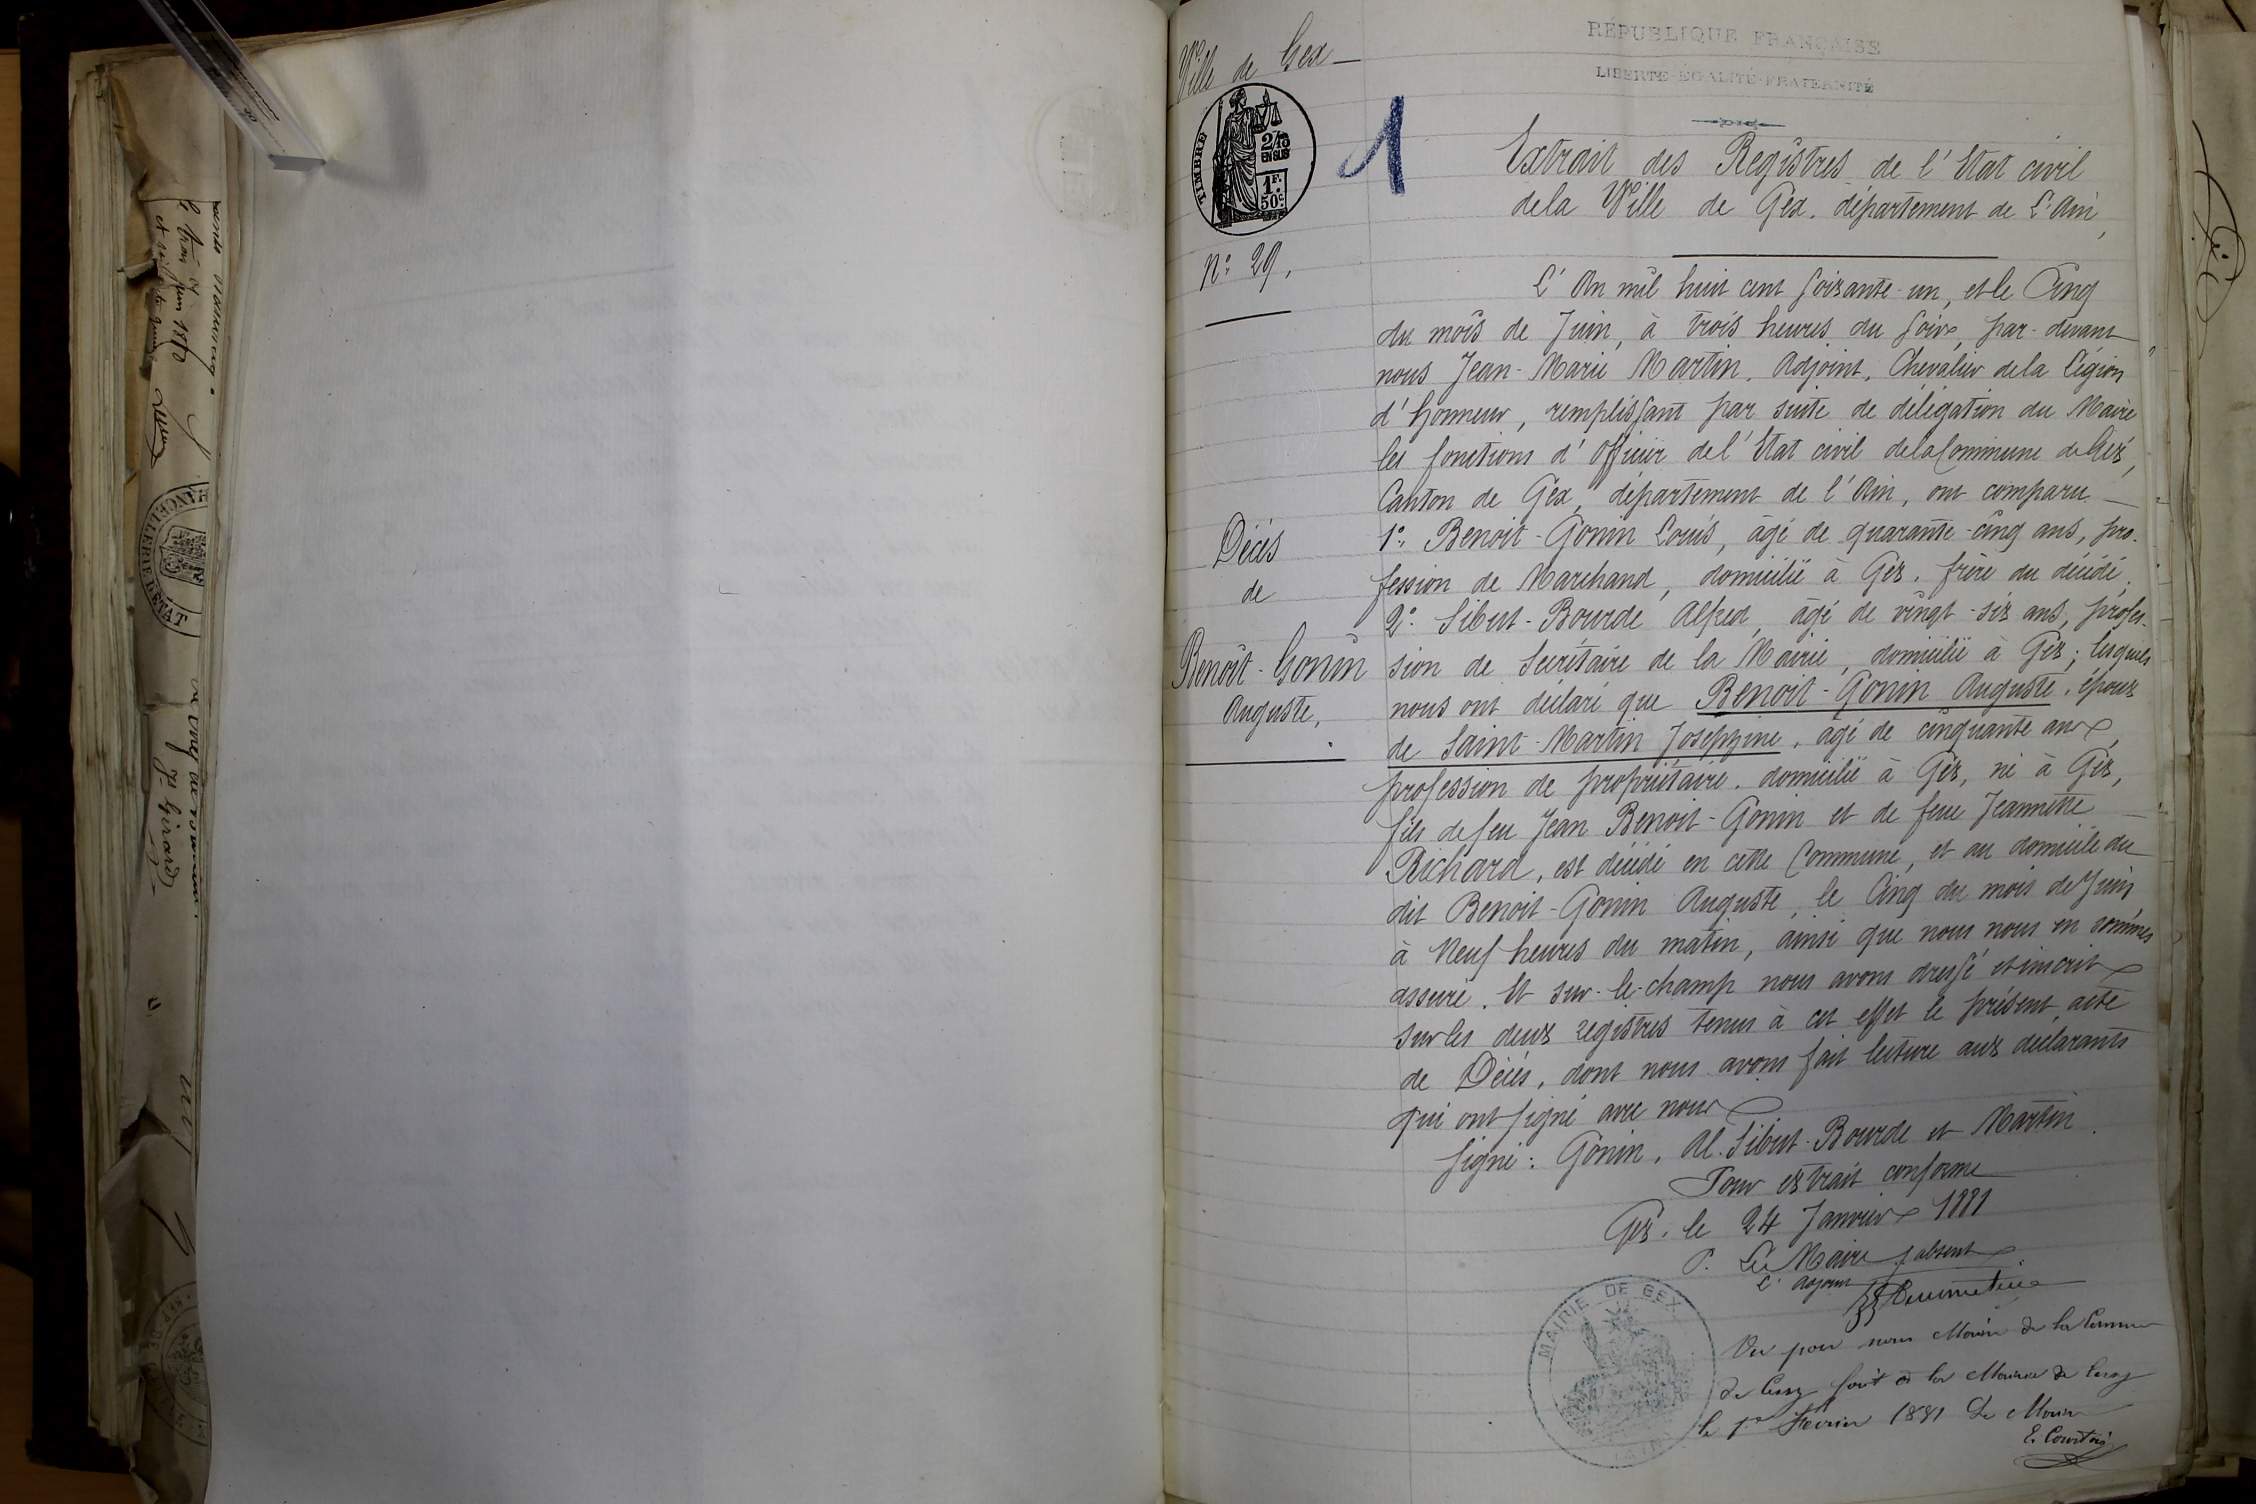 Ville de Gex
TIMBRE
2/10
EN SUS
1F.
50c.
N° 29.
Décès
de
Benoît-Gonin
Auguste.
RÉPUBLIQUE FRANÇAISE
LIBERTÉ-ÉGALITÉ-FRATERNITÉ
1
Extrait des Registres de l'Etat civil
de la Ville de Gex, département de L'Ain,
L'An mil huit cent soixante-un, et le Cinq
du mois de Juin, à trois heures du soir, par-devant
nous Jean-Marie Martin, Adjoint, Chevalier de la Légion
d'honneur, remplissant par suite de délégation du Maire
les fonctions d'Officier de l'Etat civil de la Commune de Gex,
Canton de Gex, département de l'Ain, ont comparu
1° Benoit-Gonin Louis, âgé de quarante-cinq ans, pro-
fession de Marchand, domicilié à Gex, frère du décédé.
2° Sibut-Bourde Alfred, âgé de vingt-six ans, profes-
sion de Secrétaire de la Mairie, domicilié à Gex; lesquels
nous ont déclaré que Benoit-Gonin Auguste, époux
de Saint-Martin Josephine, âgé de cinquante ans,
profession de propriétaire, domicilié à Gex, né à Gex,
fils de feu Jean Benoit-Gonin et de feue Jeannette
Richard, est décédé en cette Commune, et au domicile du
dit Benoit-Gonin Auguste, le Cinq du mois de Juin,
à Neuf heures du matin, ainsi que nous nous en sommes
assuré. Et sur-le-champ nous avons dressé et inscrit
sur les deux registres tenus à cet effet le présent acte
de Décès, dont nous avons fait lecture aux déclarants
qui ont signé avec nous
Signé: Gonin, Al. Sibut-Bourde et Martin.
Pour extrait conforme
Gex, le 24 Janvier 1881
P. Le Maire absent
L'adjoint
MAIRIE DE GEX
(AIN)
Vu pour nous Maire de la Commune
de Cessy fait à la Mairie de Cessy
le 1er Février 1881 Le Maire
E. Courtois
le trois Juin 1860
CHANCELLERIE D'ÉTAT
J. Girard